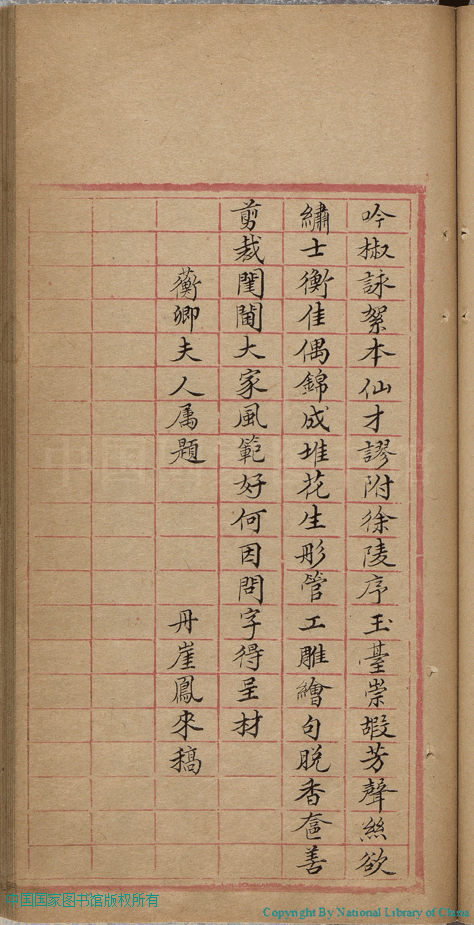 吟椒詠絮本仙才謬附徐陵序玉臺崇嘏芳聲絲欲
繡士衡佳偶錦成堆花生彤管工雕繪句脫香奩善
剪裁閨閫大家風範好何因問字得呈材
蘅卿夫人属題 丹崖鳳來稿
中国国家图书馆版权所有
Copyright By National Library of China